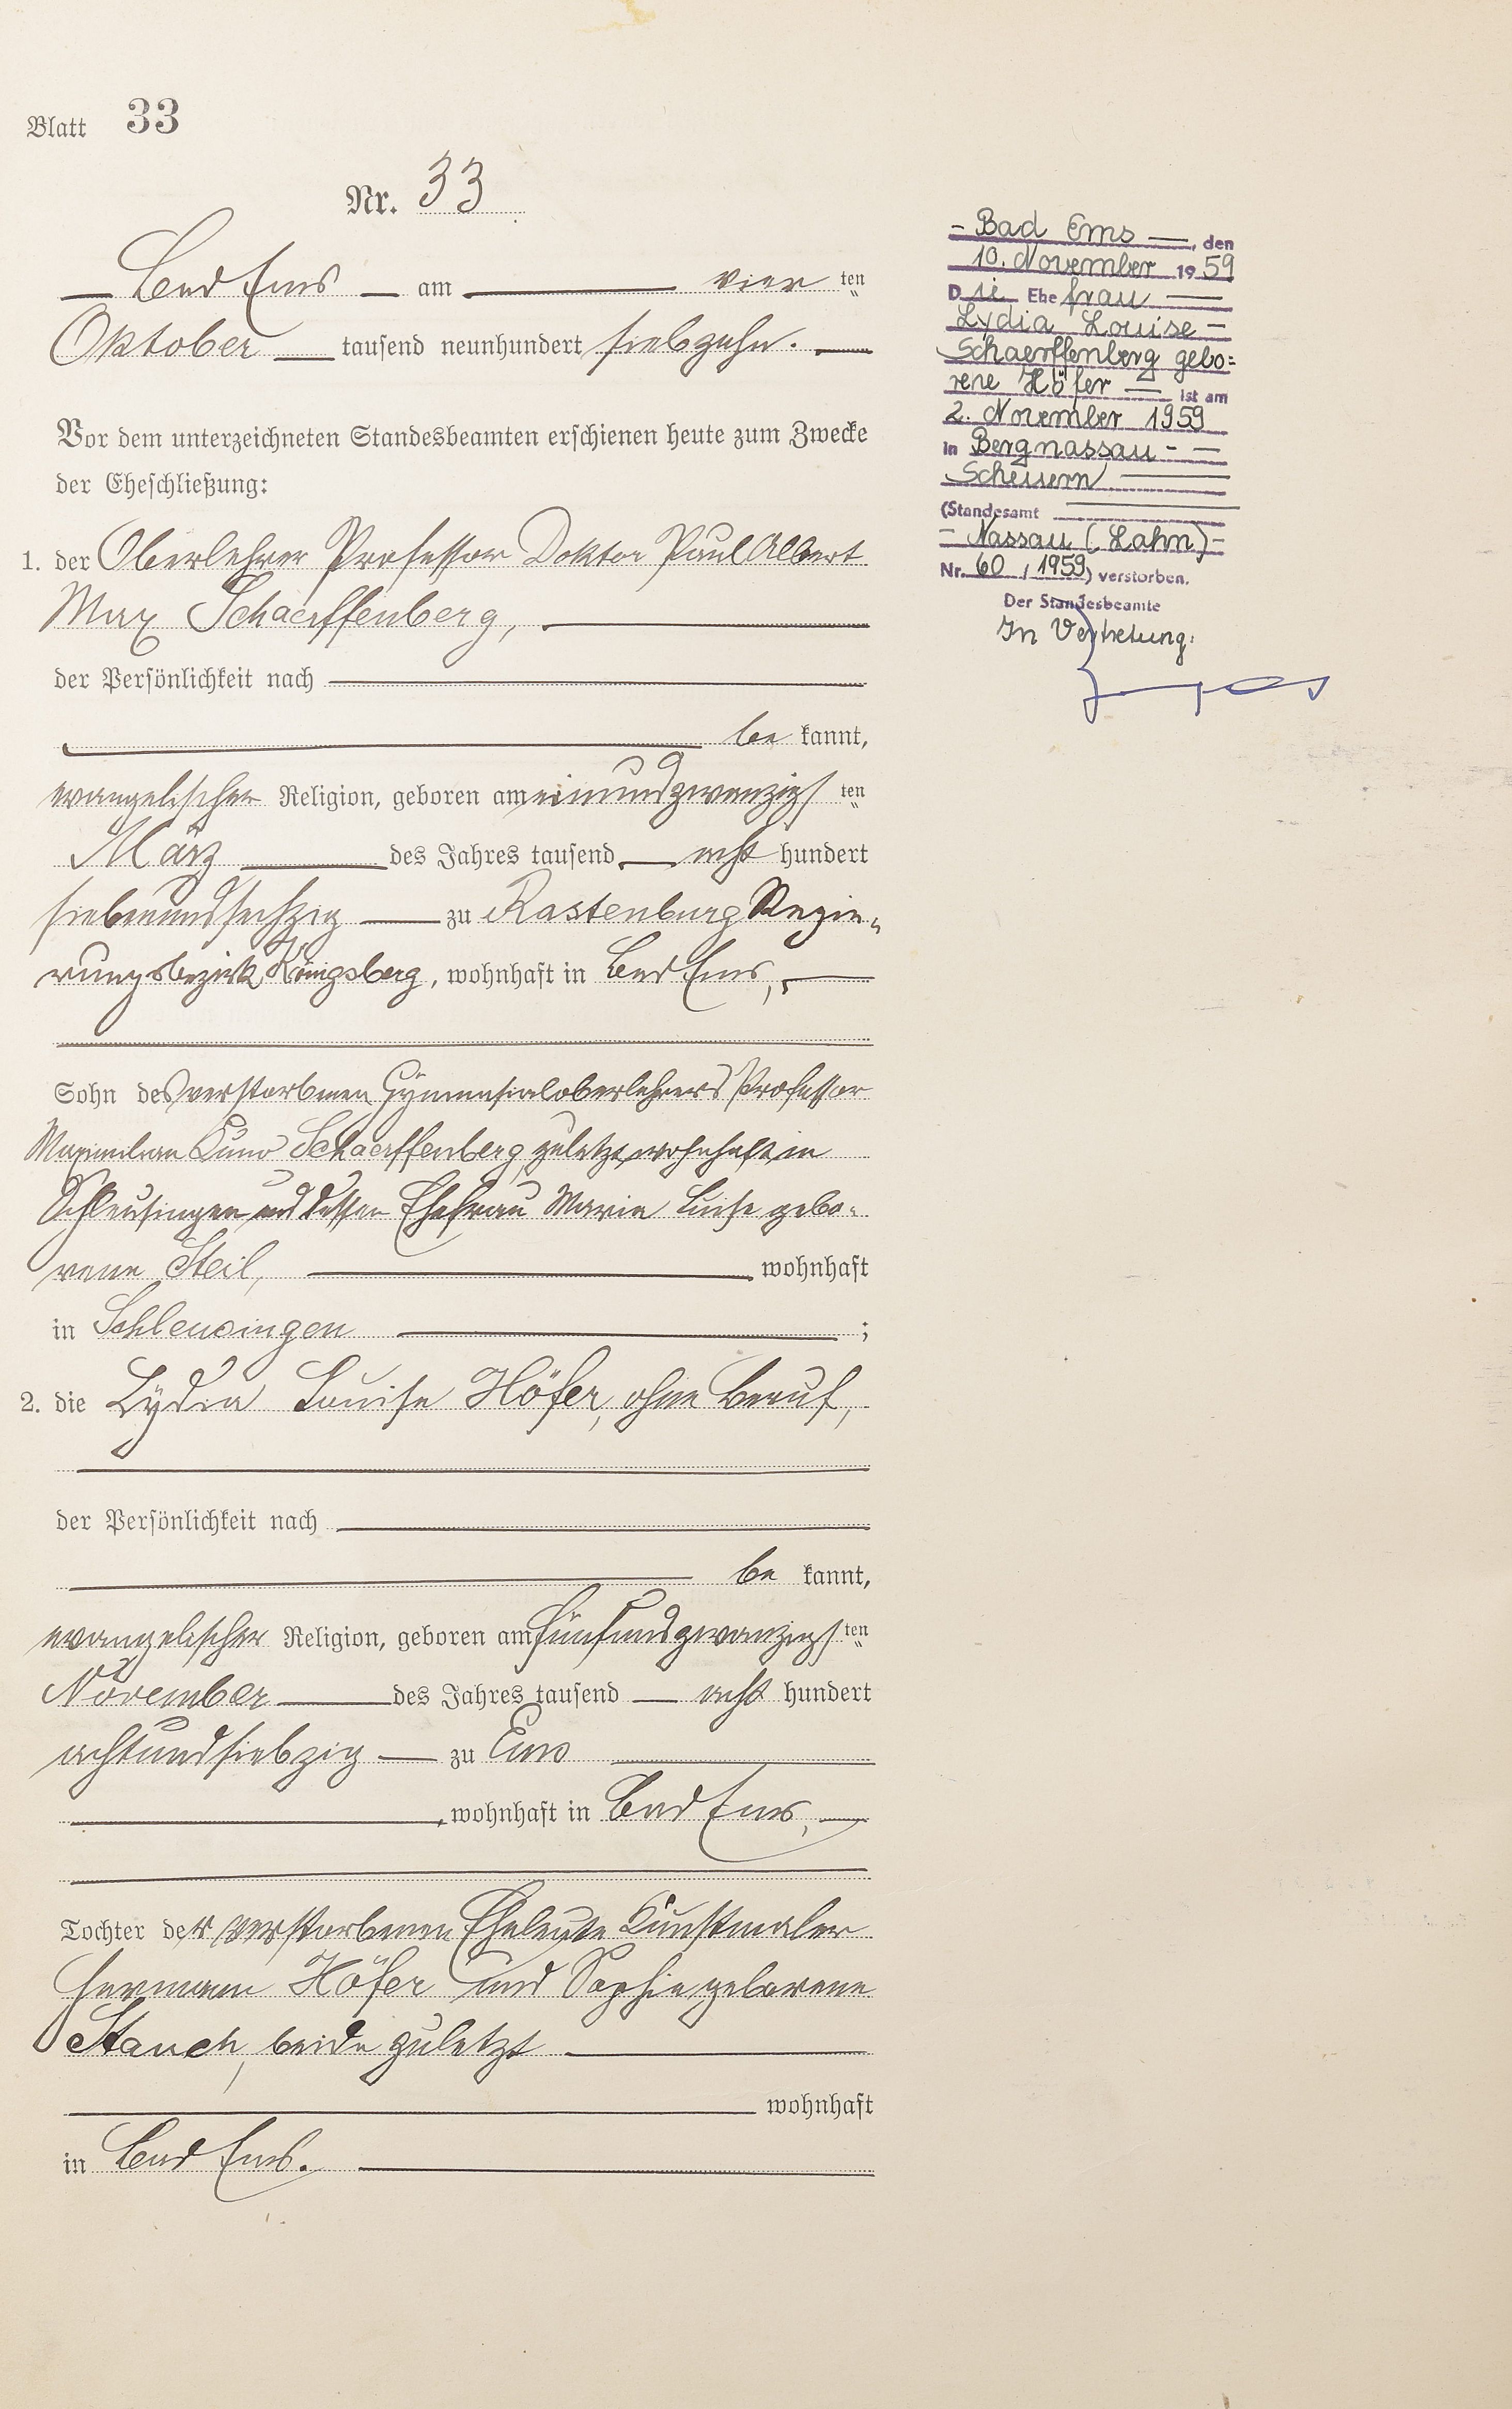 Blatt 33
Nr. 33
Bad Ems am vier ten
Oktober tausend neunhundert siebzehn.
Vor dem unterzeichneten Standesbeamten erschienen heute zum Zwecke
der Eheschließung:
1. der Oberlehrer Professor Doktor Paul Albert
Max Schaerffenberg,
der Persönlichkeit nach
be kannt,
evangelischer Religion, geboren am einundzwanzigs ten
März des Jahres tausend acht hundert
siebenundsechzig zu Rastenburg Regie-
rungsbezirk Königsberg, wohnhaft in Bad Ems,
Sohn des verstorbenen Gymnasialoberlehrers Professor
Maximilian Kuno Schaerffenberg, zuletzt wohnhaft in
Schleusingen und dessen Ehefrau Maria Luise gebo-
rene Steil, wohnhaft
in Schleusingen ;
2. die Lydia Louise Höfer, ohne Beruf,
der Persönlichkeit nach
be kannt,
evangelischer Religion, geboren am fünfundzwanzigs ten
November des Jahres tausend acht hundert
achtundsiebzig zu Ems
, wohnhaft in Bad Ems,
Tochter der verstorbenen Eheleute Kunstmaler
Hermann Höfer und Sophie geborene
Stauch, beide zuletzt
wohnhaft
in Bad Ems.
- Bad Ems —, den
10. November 19 59
Die Ehefrau —
Lydia Louise -
Schaerffenberg gebo=
rene Höfer — ist am
2. November 1959
in Bergnassau - -
Scheuern
(Standesamt
- Nassau (Lahn) -
Nr. 60 / 1959) verstorben.
Der Standesbeamte
In Vertretung: